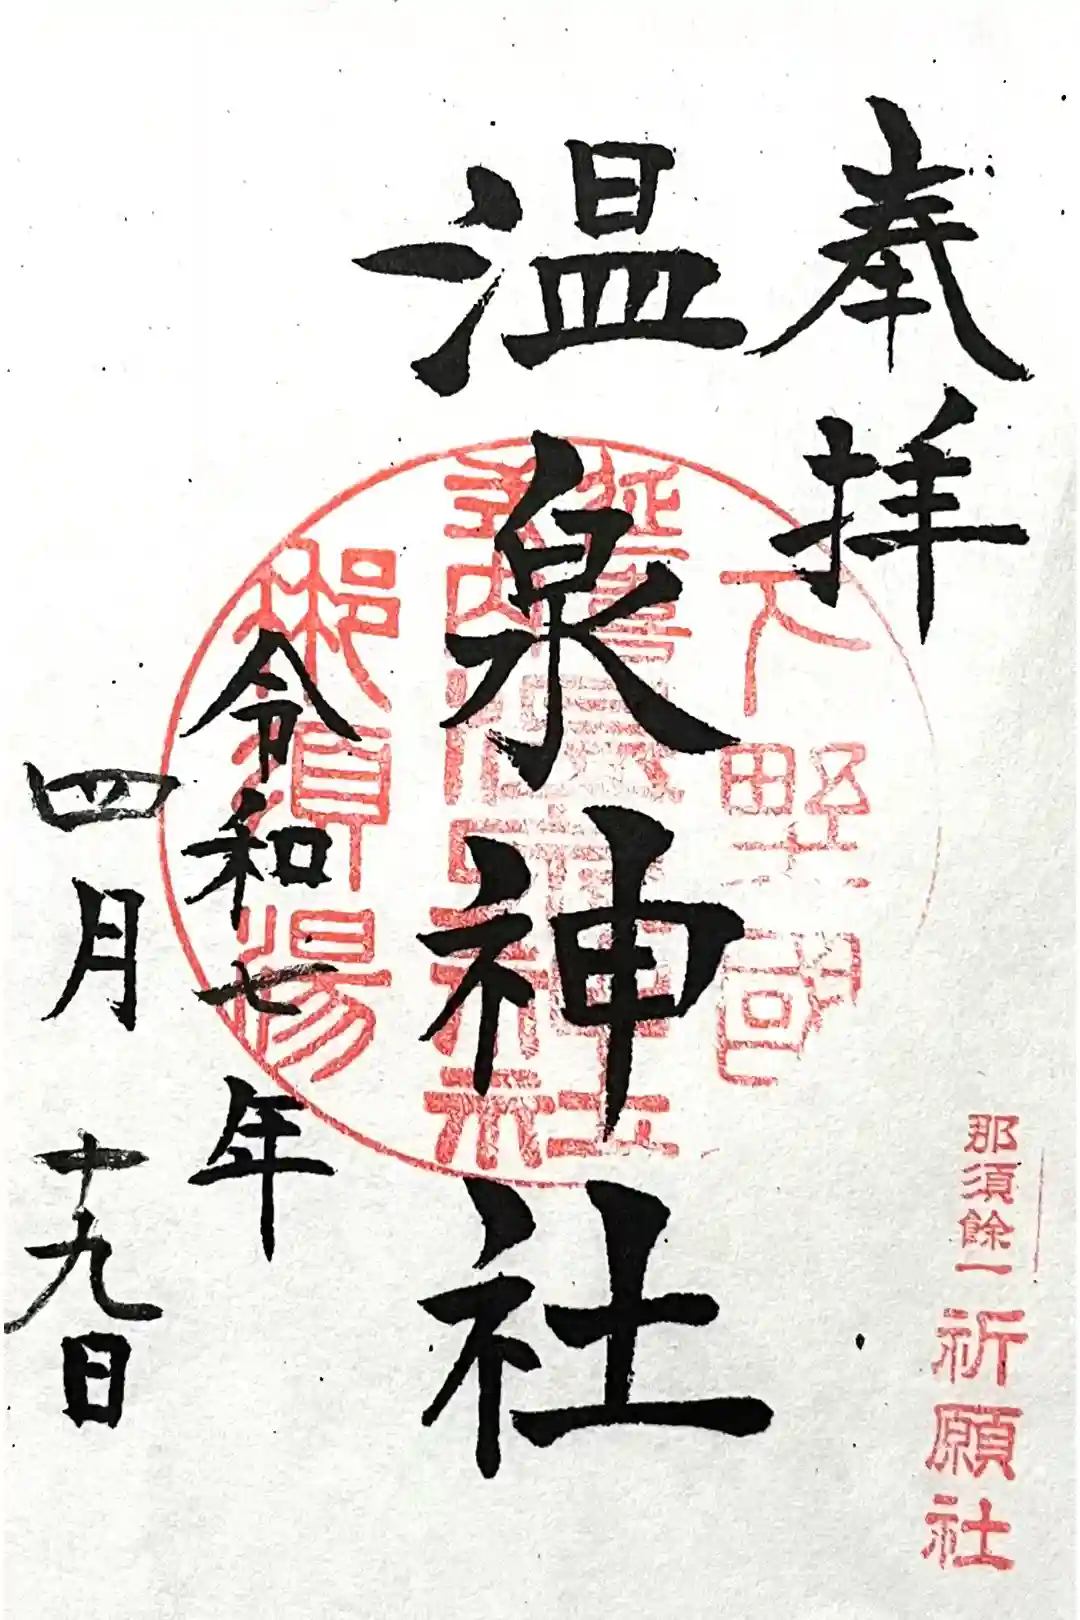 奉拝
温泉神社
令和七年
四月十九日
下野國
延喜
式内
温泉神社
那須湯
那須余一
祈願社